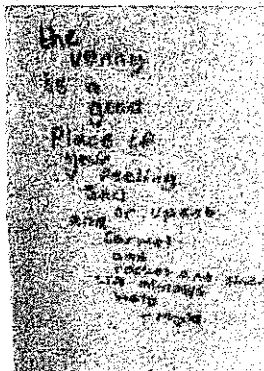 the
venny
is a
good
place if
your
feeling
sad
or upset
and
and
rocket and
always
help